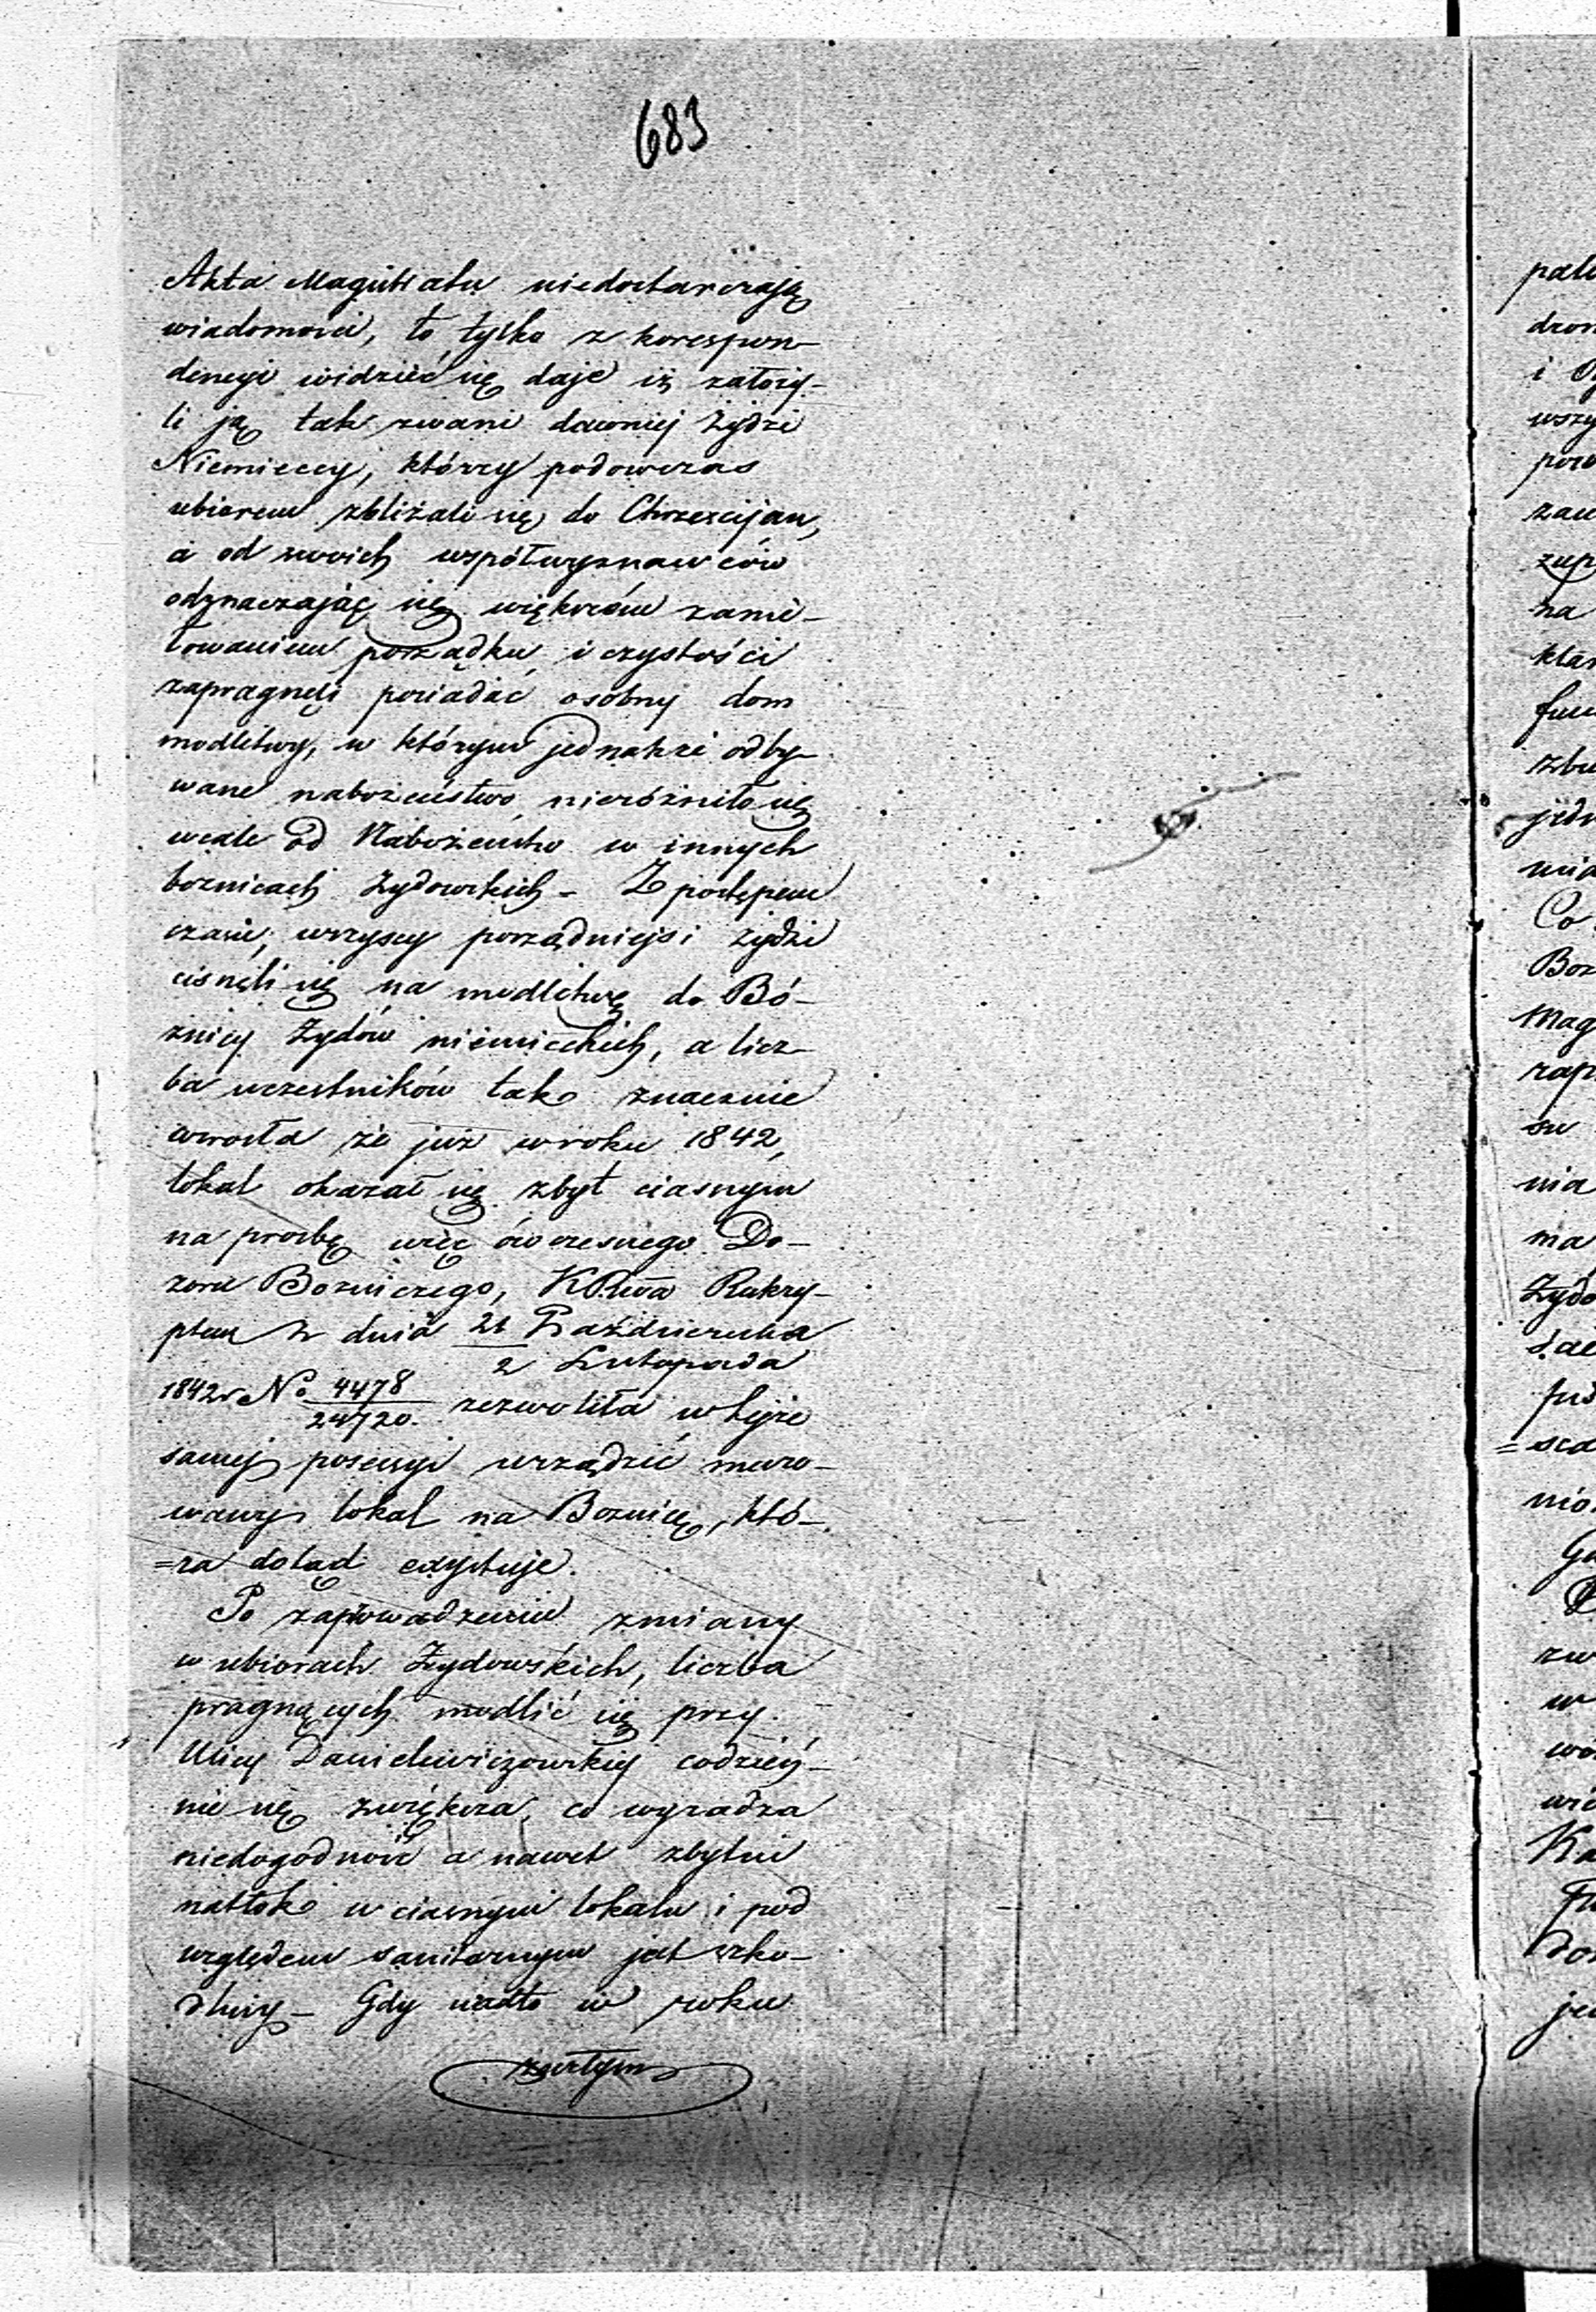 683
Akta Magistratu niedostarczają
wiadomości, to tylko z korespon-
dencyi widzieć się daje iż założy-
li ją tak zwani dawniej Żydzi
Niemieccy, którzy podówczas
ubiorem zbliżali się do Chrzescijan,
a od swoich współwyznawców
odznaczając się większém zami-
łowaniem porządku i czystości
zapragnęli posiadać osobny dom
modlitwy, w którym jednakże odby-
wane nabożeństwo nieróżniło się
wcale od Nabożeństw w innych
boznicach Żydowskich - Z postępem
czasu, wszyscy porządniejsi żydzi
cisnęli się na modlitwę do Bó-
żnicy Żydów niemieckich, a licz-
ba uczestników tak znacznie
wzrosła że już w roku 1842,
lokal okazał się zbyt ciasnym
na prosbę więc ówczesnego Do-
zoru Bozniczego, KRwa Reskry-
ptem z dnia 21 Października
2 Listopada
1842r No 4478
24720. zezwoliła w tejże
samej posessyi urządzić muro-
wany lokal na Boznicę, któ-
=ra dotąd exystuje.
Po zaprowadzeniu zmiany
w ubiorach Żydowskich, liczba
pragnących modlić się przy
Ulicy Danielewiczowskiej codzień-
nie się zwiększa, co wyradza
niedogodność a nawet zbytni
natłok w ciasnym lokalu i pod
względem sanitarnym jest szko-
dliwy - Gdy nadto w roku
zeszłym